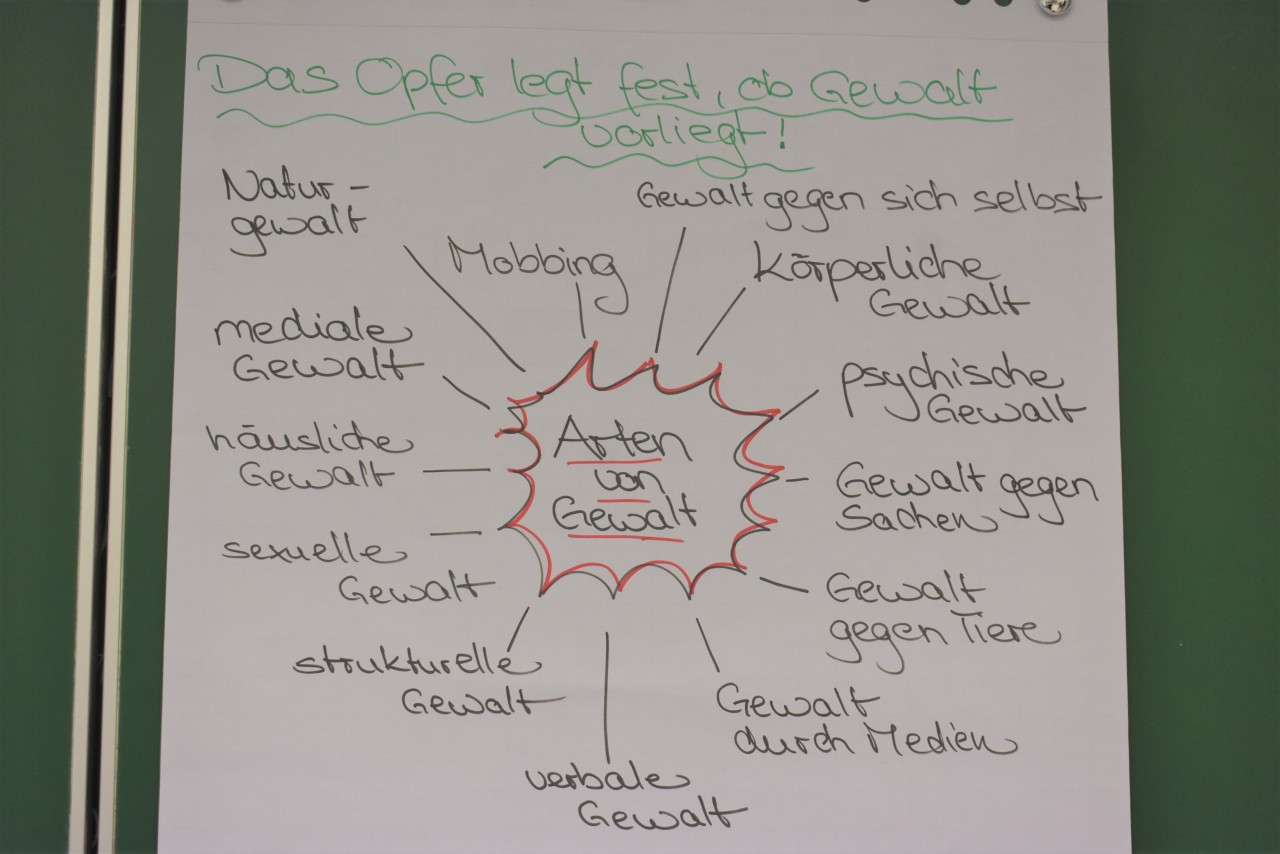 Das Opfer legt fest, ob Gewalt
vorliegt!
Natur-
gewalt
Mobbing
Gewalt gegen sich selbst
körperliche
Gewalt
mediale
Gewalt
psychische
Gewalt
häusliche
Gewalt
Arten
von
Gewalt
Gewalt gegen
Sachen
sexuelle
Gewalt
Gewalt
gegen Tiere
strukturelle
Gewalt
Gewalt
durch Medien
verbale
Gewalt